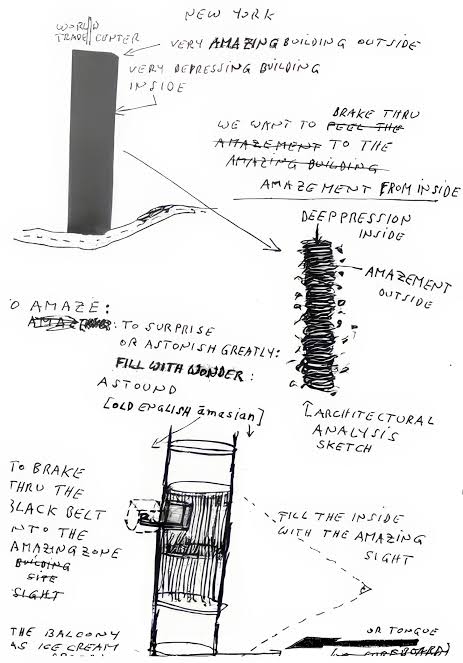 NEW YORK
WORLD
TRADE CENTER
VERY AMAZING BUILDING OUTSIDE
VERY DEPRESSING BUILDING
INSIDE
BRAKE THRU
WE WANT TO FEEL THE
AMAZEMENT TO THE
AMAZING BUILDING
AMAZEMENT FROM INSIDE
DEEPPRESSION
INSIDE
AMAZEMENT
OUTSIDE
O AMAZE:
: TO SURPRISE
OR ASTONISH GREATLY:
FILL WITH WONDER:
ASTOUND
[OLD ENGLISH āmasian]
ARCHITECTURAL
ANALYSIS
SKETCH
TO BRAKE
THRU THE
BLACK BELT
INTO THE
AMAZING ZONE
BUILDING
SITE
SIGHT
FILL THE INSIDE
WITH THE AMAZING
SIGHT
THE BALCONY
AS ICE CREAM
OR TONGUE